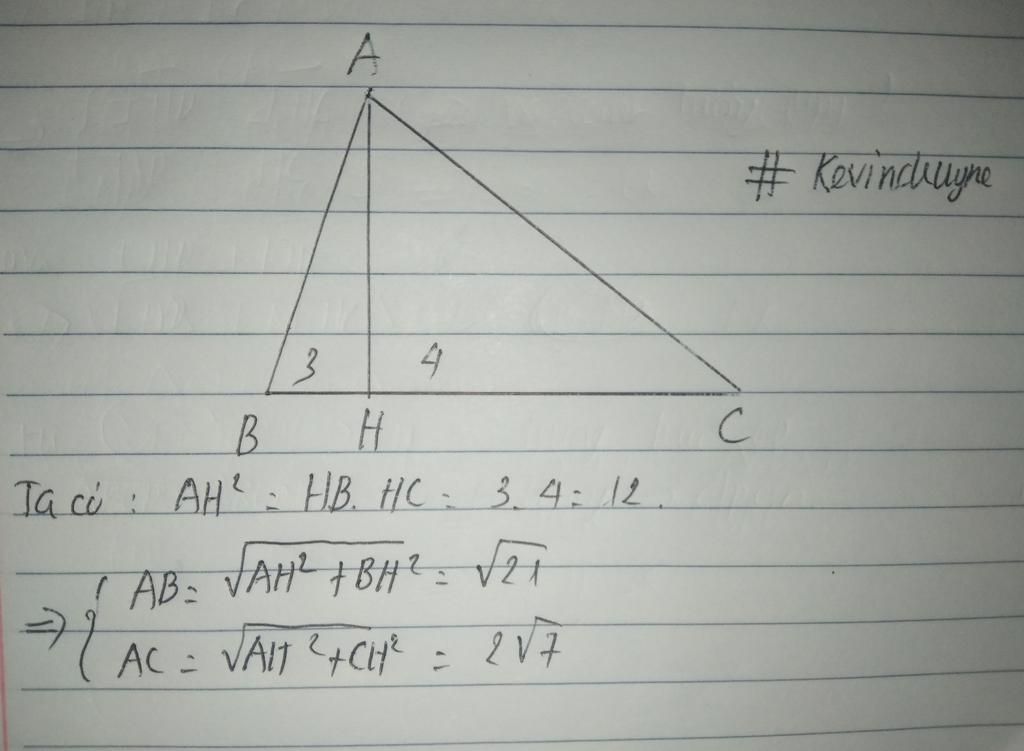 A
# Kevinchuyne
3 4
B H C
Ta có : AH² = HB. HC = 3. 4 = 12.
⇒ { AB = √(AH² + BH²) = √21
AC = √(AH² + CH²) = 2√7